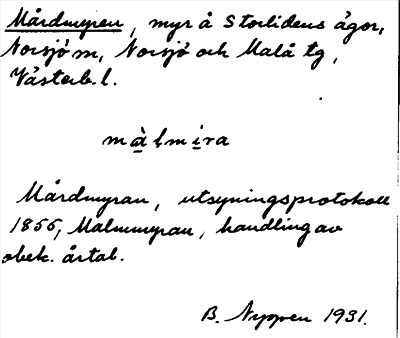 Mårdmyren, myr å Storlidens ägor,
Norsjö sn, Norsjö och Malå tg,
Västerb. l.
màlmira
Mårdmyran, utsyningsprotokoll
1855, Malmmyran, handling av
obek. årtal.
B. Nyppen 1931.